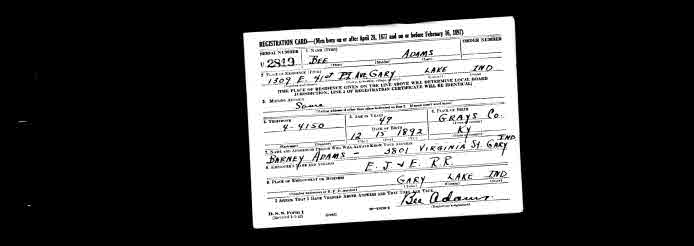 REGISTRATION CARD—(Men born on or after April 28, 1877 and on or before February 16, 1897)
SERIAL NUMBER 1. NAME (Print) ORDER NUMBER
U 2819 BEE ADAMS
(First) (Middle) (Last)
2. PLACE OF RESIDENCE (Print)
1309 E. 41ST AVE GARY LAKE IND
[THE PLACE OF RESIDENCE GIVEN ON THE LINE ABOVE WILL DETERMINE LOCAL BOARD
JURISDICTION; LINE 2 OF REGISTRATION CERTIFICATE WILL BE IDENTICAL]
3. MAILING ADDRESS
Same
4. TELEPHONE 5. AGE IN YEARS 6. PLACE OF BIRTH
4-4150 49 GRAYS CO.
DATE OF BIRTH
12 15 1892 KY
7. NAME AND ADDRESS OF PERSON WHO WILL ALWAYS KNOW YOUR ADDRESS
BARNEY ADAMS - 3801 VIRGINIA ST. GARY IND
8. EMPLOYER'S NAME AND ADDRESS
E. J & E. R.R.
9. PLACE OF EMPLOYMENT OR BUSINESS
GARY LAKE IND
I AFFIRM THAT I HAVE VERIFIED ABOVE ANSWERS AND THAT THEY ARE TRUE.
D. S. S. FORM 1 Bee Adams